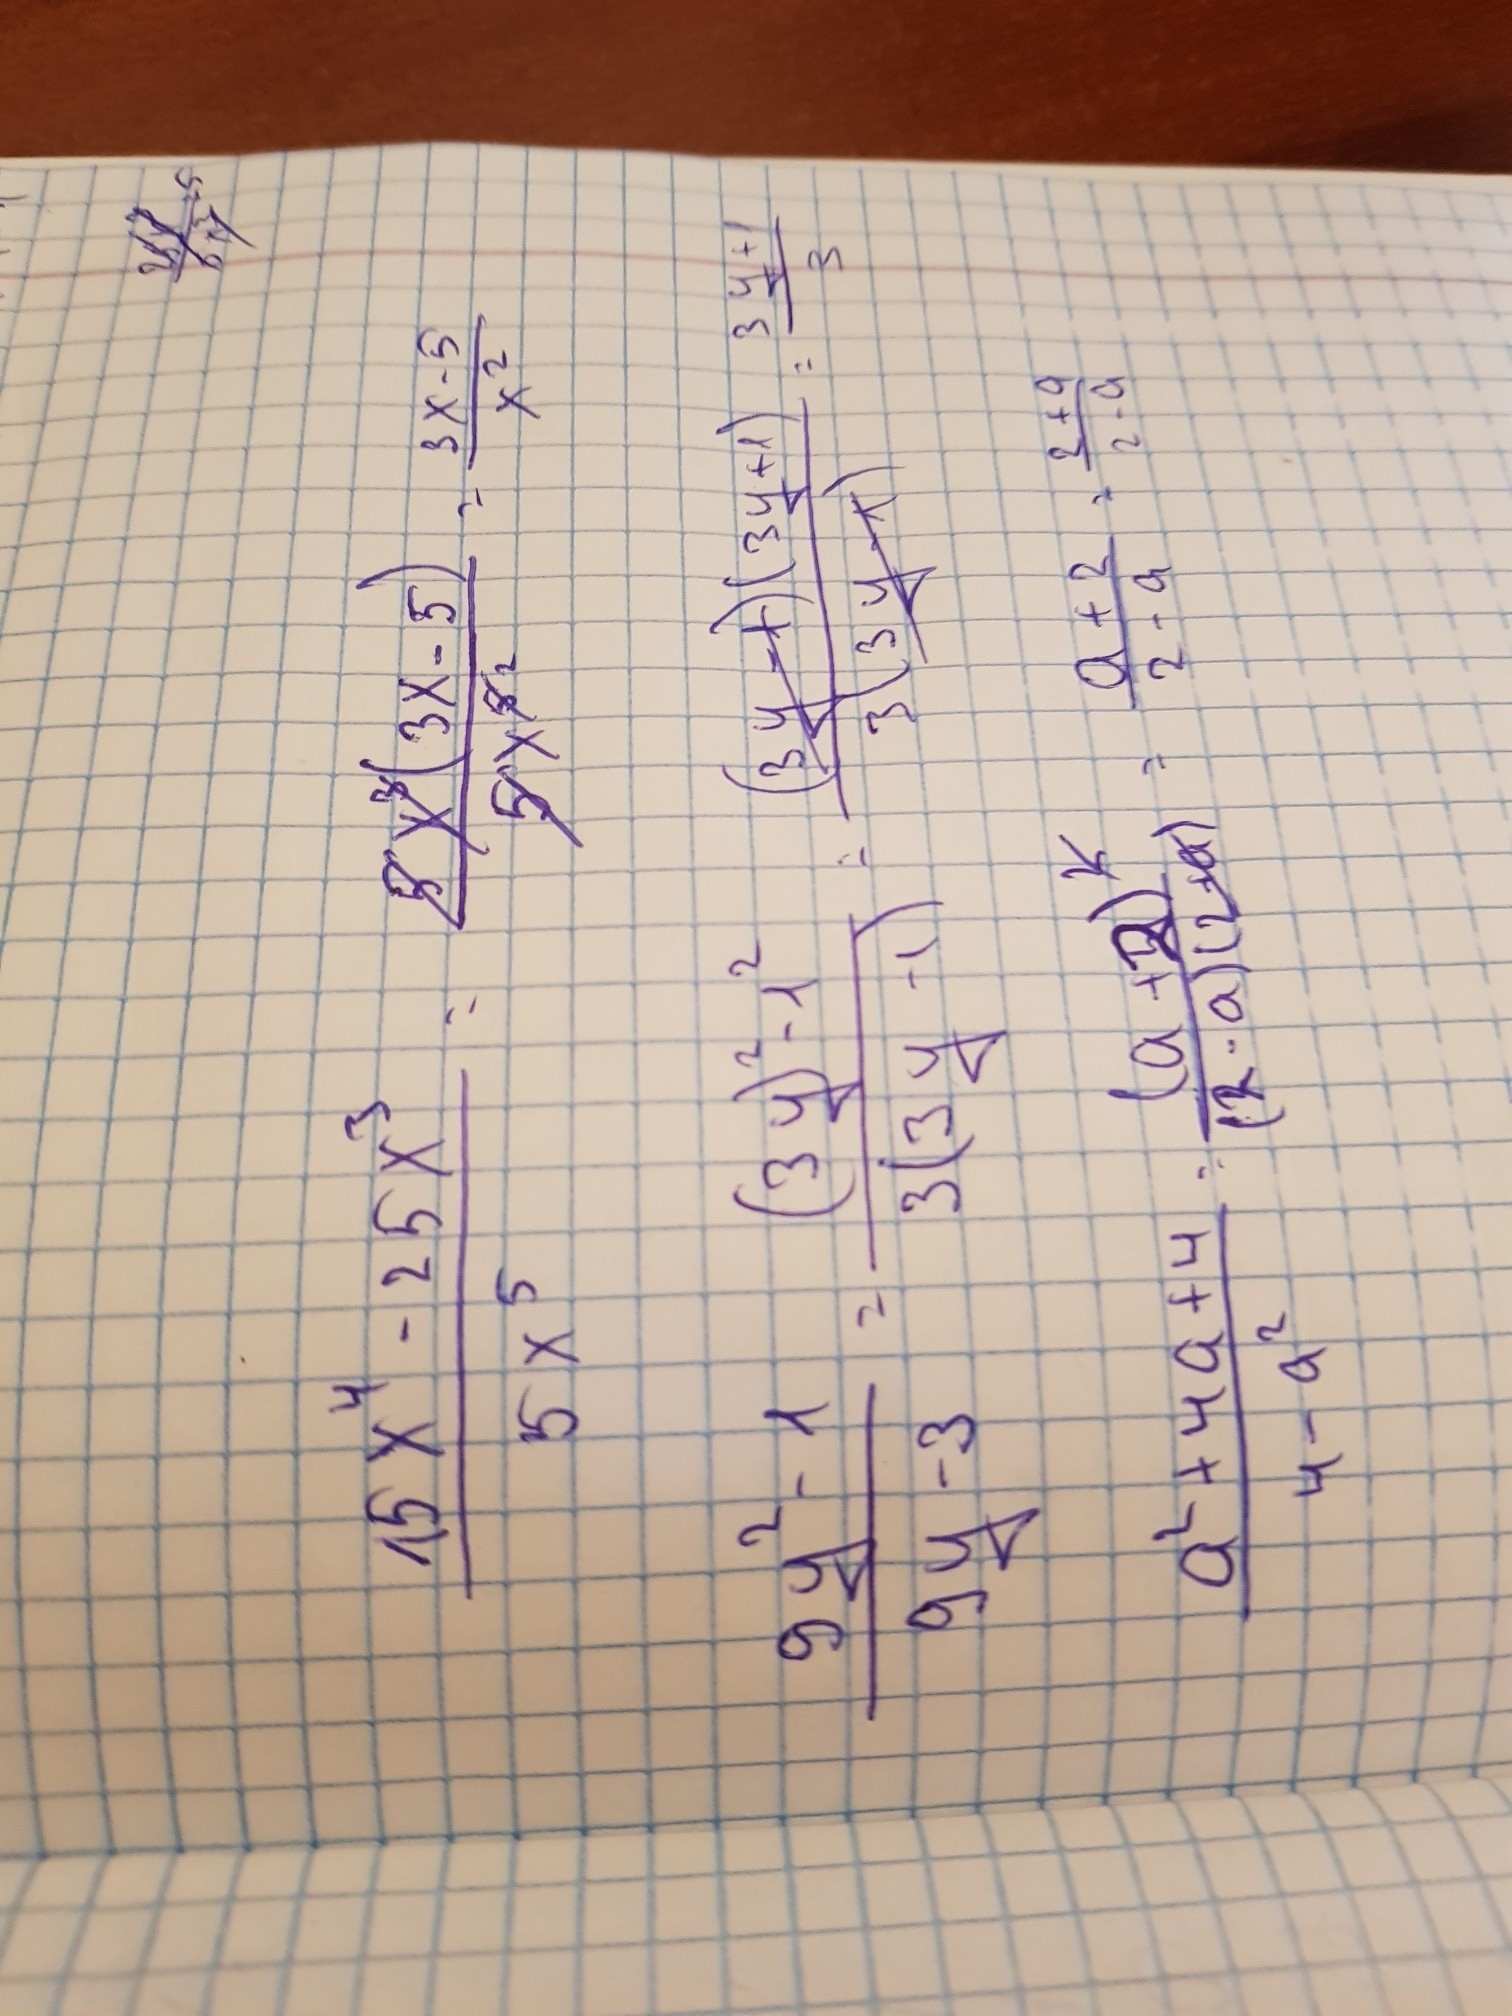 15x⁴ - 25x³ / 5x⁵ = 5x³(3x-5) / 5x⁵ ² = 3x-5 / x²
9y² - 1 / 9y - 3 = (3y)² - 1² / 3(3y - 1) = (3y-1)(3y+1) / 3(3y-1) = 3y+1 / 3
a² + 4a + 4 / 4 - a² = (a+2)² / (2-a)(2+a) = a+2 / 2-a = 2+a / 2-a